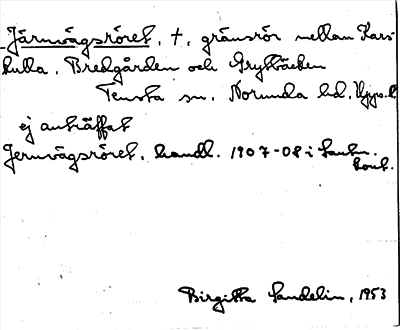 Järnvägsröret, †, gränsrör mellan Kars-
kulla, Bredgården och Grytbäcken
Tensta sn, Norunda hd, Upps. l
ej anträffat
Jernvägsröret, handl. 1907-08 i Lantm.
kont.
Birgitta Sandelin, 1953